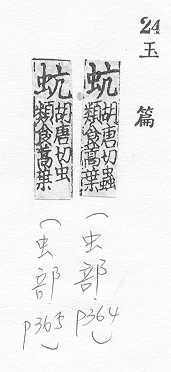 24
玉篇
蚢胡唐切蟲類食蒿葉
(虫部.p364)
蚢胡唐切虫類食蒿葉
(虫部p365)